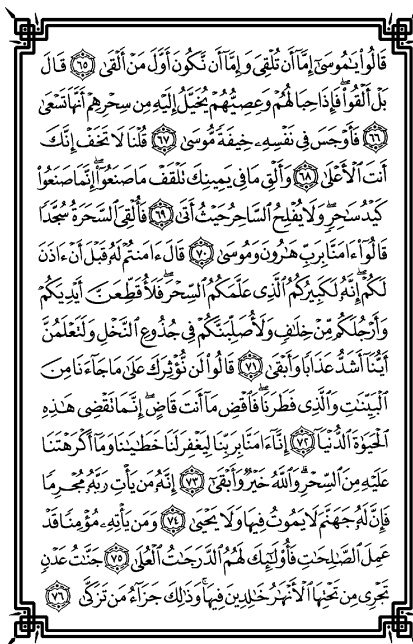 قَالُوا۟ يَٰمُوسَىٰٓ إِمَّآ أَن تُلْقِىَ وَإِمَّآ أَن نَّكُونَ أَوَّلَ مَنْ أَلْقَىٰ ﴿٦٥﴾ قَالَ
بَلْ أَلْقُوا۟ ۖ فَإِذَا حِبَالُهُمْ وَعِصِيُّهُمْ يُخَيَّلُ إِلَيْهِ مِن سِحْرِهِمْ أَنَّهَا تَسْعَىٰ
﴿٦٦﴾ فَأَوْجَسَ فِى نَفْسِهِۦ خِيفَةً مُّوسَىٰ ﴿٦٧﴾ قُلْنَا لَا تَخَفْ إِنَّكَ
أَنتَ ٱلْأَعْلَىٰ ﴿٦٨﴾ وَأَلْقِ مَا فِى يَمِينِكَ تَلْقَفْ مَا صَنَعُوٓا۟ ۖ إِنَّمَا صَنَعُوا۟
كَيْدُ سَٰحِرٍ ۖ وَلَا يُفْلِحُ ٱلسَّاحِرُ حَيْثُ أَتَىٰ ﴿٦٩﴾ فَأُلْقِىَ ٱلسَّحَرَةُ سُجَّدًا
قَالُوٓا۟ ءَامَنَّا بِرَبِّ هَٰرُونَ وَمُوسَىٰ ﴿٧٠﴾ قَالَ ءَامَنتُمْ لَهُۥ قَبْلَ أَنْ ءَاذَنَ
لَكُمْ ۖ إِنَّهُۥ لَكَبِيرُكُمُ ٱلَّذِى عَلَّمَكُمُ ٱلسِّحْرَ ۖ فَلَأُقَطِّعَنَّ أَيْدِيَكُمْ
وَأَرْجُلَكُم مِّنْ خِلَٰفٍ وَلَأُصَلِّبَنَّكُمْ فِى جُذُوعِ ٱلنَّخْلِ وَلَتَعْلَمُنَّ
أَيُّنَآ أَشَدُّ عَذَابًا وَأَبْقَىٰ ﴿٧١﴾ قَالُوا۟ لَن نُّؤْثِرَكَ عَلَىٰ مَا جَآءَنَا مِنَ
ٱلْبَيِّنَٰتِ وَٱلَّذِى فَطَرَنَا ۖ فَٱقْضِ مَآ أَنتَ قَاضٍ ۖ إِنَّمَا تَقْضِى هَٰذِهِ
ٱلْحَيَوٰةَ ٱلدُّنْيَآ ﴿٧٢﴾ إِنَّآ ءَامَنَّا بِرَبِّنَا لِيَغْفِرَ لَنَا خَطَٰيَٰنَا وَمَآ أَكْرَهْتَنَا
عَلَيْهِ مِنَ ٱلسِّحْرِ ۗ وَٱللَّهُ خَيْرٌ وَأَبْقَىٰٓ ﴿٧٣﴾ إِنَّهُۥ مَن يَأْتِ رَبَّهُۥ مُجْرِمًا
فَإِنَّ لَهُۥ جَهَنَّمَ لَا يَمُوتُ فِيهَا وَلَا يَحْيَىٰ ﴿٧٤﴾ وَمَن يَأْتِهِۦ مُؤْمِنًا قَدْ
عَمِلَ ٱلصَّٰلِحَٰتِ فَأُو۟لَٰٓئِكَ لَهُمُ ٱلدَّرَجَٰتُ ٱلْعُلَىٰ ﴿٧٥﴾ جَنَّٰتُ عَدْنٍ
تَجْرِى مِن تَحْتِهَا ٱلْأَنْهَٰرُ خَٰلِدِينَ فِيهَا ۚ وَذَٰلِكَ جَزَآءُ مَن تَزَكَّىٰ ﴿٧٦﴾